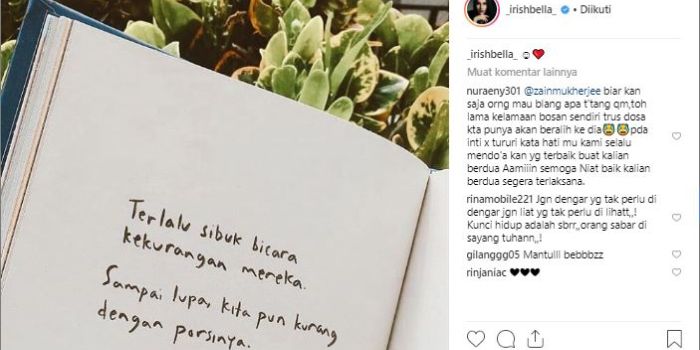 _irishbella_ • Diikuti
_irishbella_ ☺❤
Muat komentar lainnya
nuraeny301 @zainmukherjee biar kan
saja orng mau blang apa t'tang qm,toh
lama kelamaan bosan sendiri trus dosa
kta punya akan beralih ke dia😰😰pda
inti x tururi kata hati mu kami selalu
mendo'a kan yg terbaik buat kalian
berdua Aamiiin semoga Niat baik kalian
berdua segera terlaksana.
rinamobile221 Jgn dengar yg tak perlu di
dengar jgn liat yg tak perlu di lihatt,,!
Kunci hidup adalah sbrr,,orang sabar di
sayang tuhann,,!
gilanggg05 Mantulll bebbbzz
rinjaniac ♥♥♥
Terlalu sibuk bicara
kekurangan mereka.
Sampai lupa, kita pun kurang
dengan porsinya.